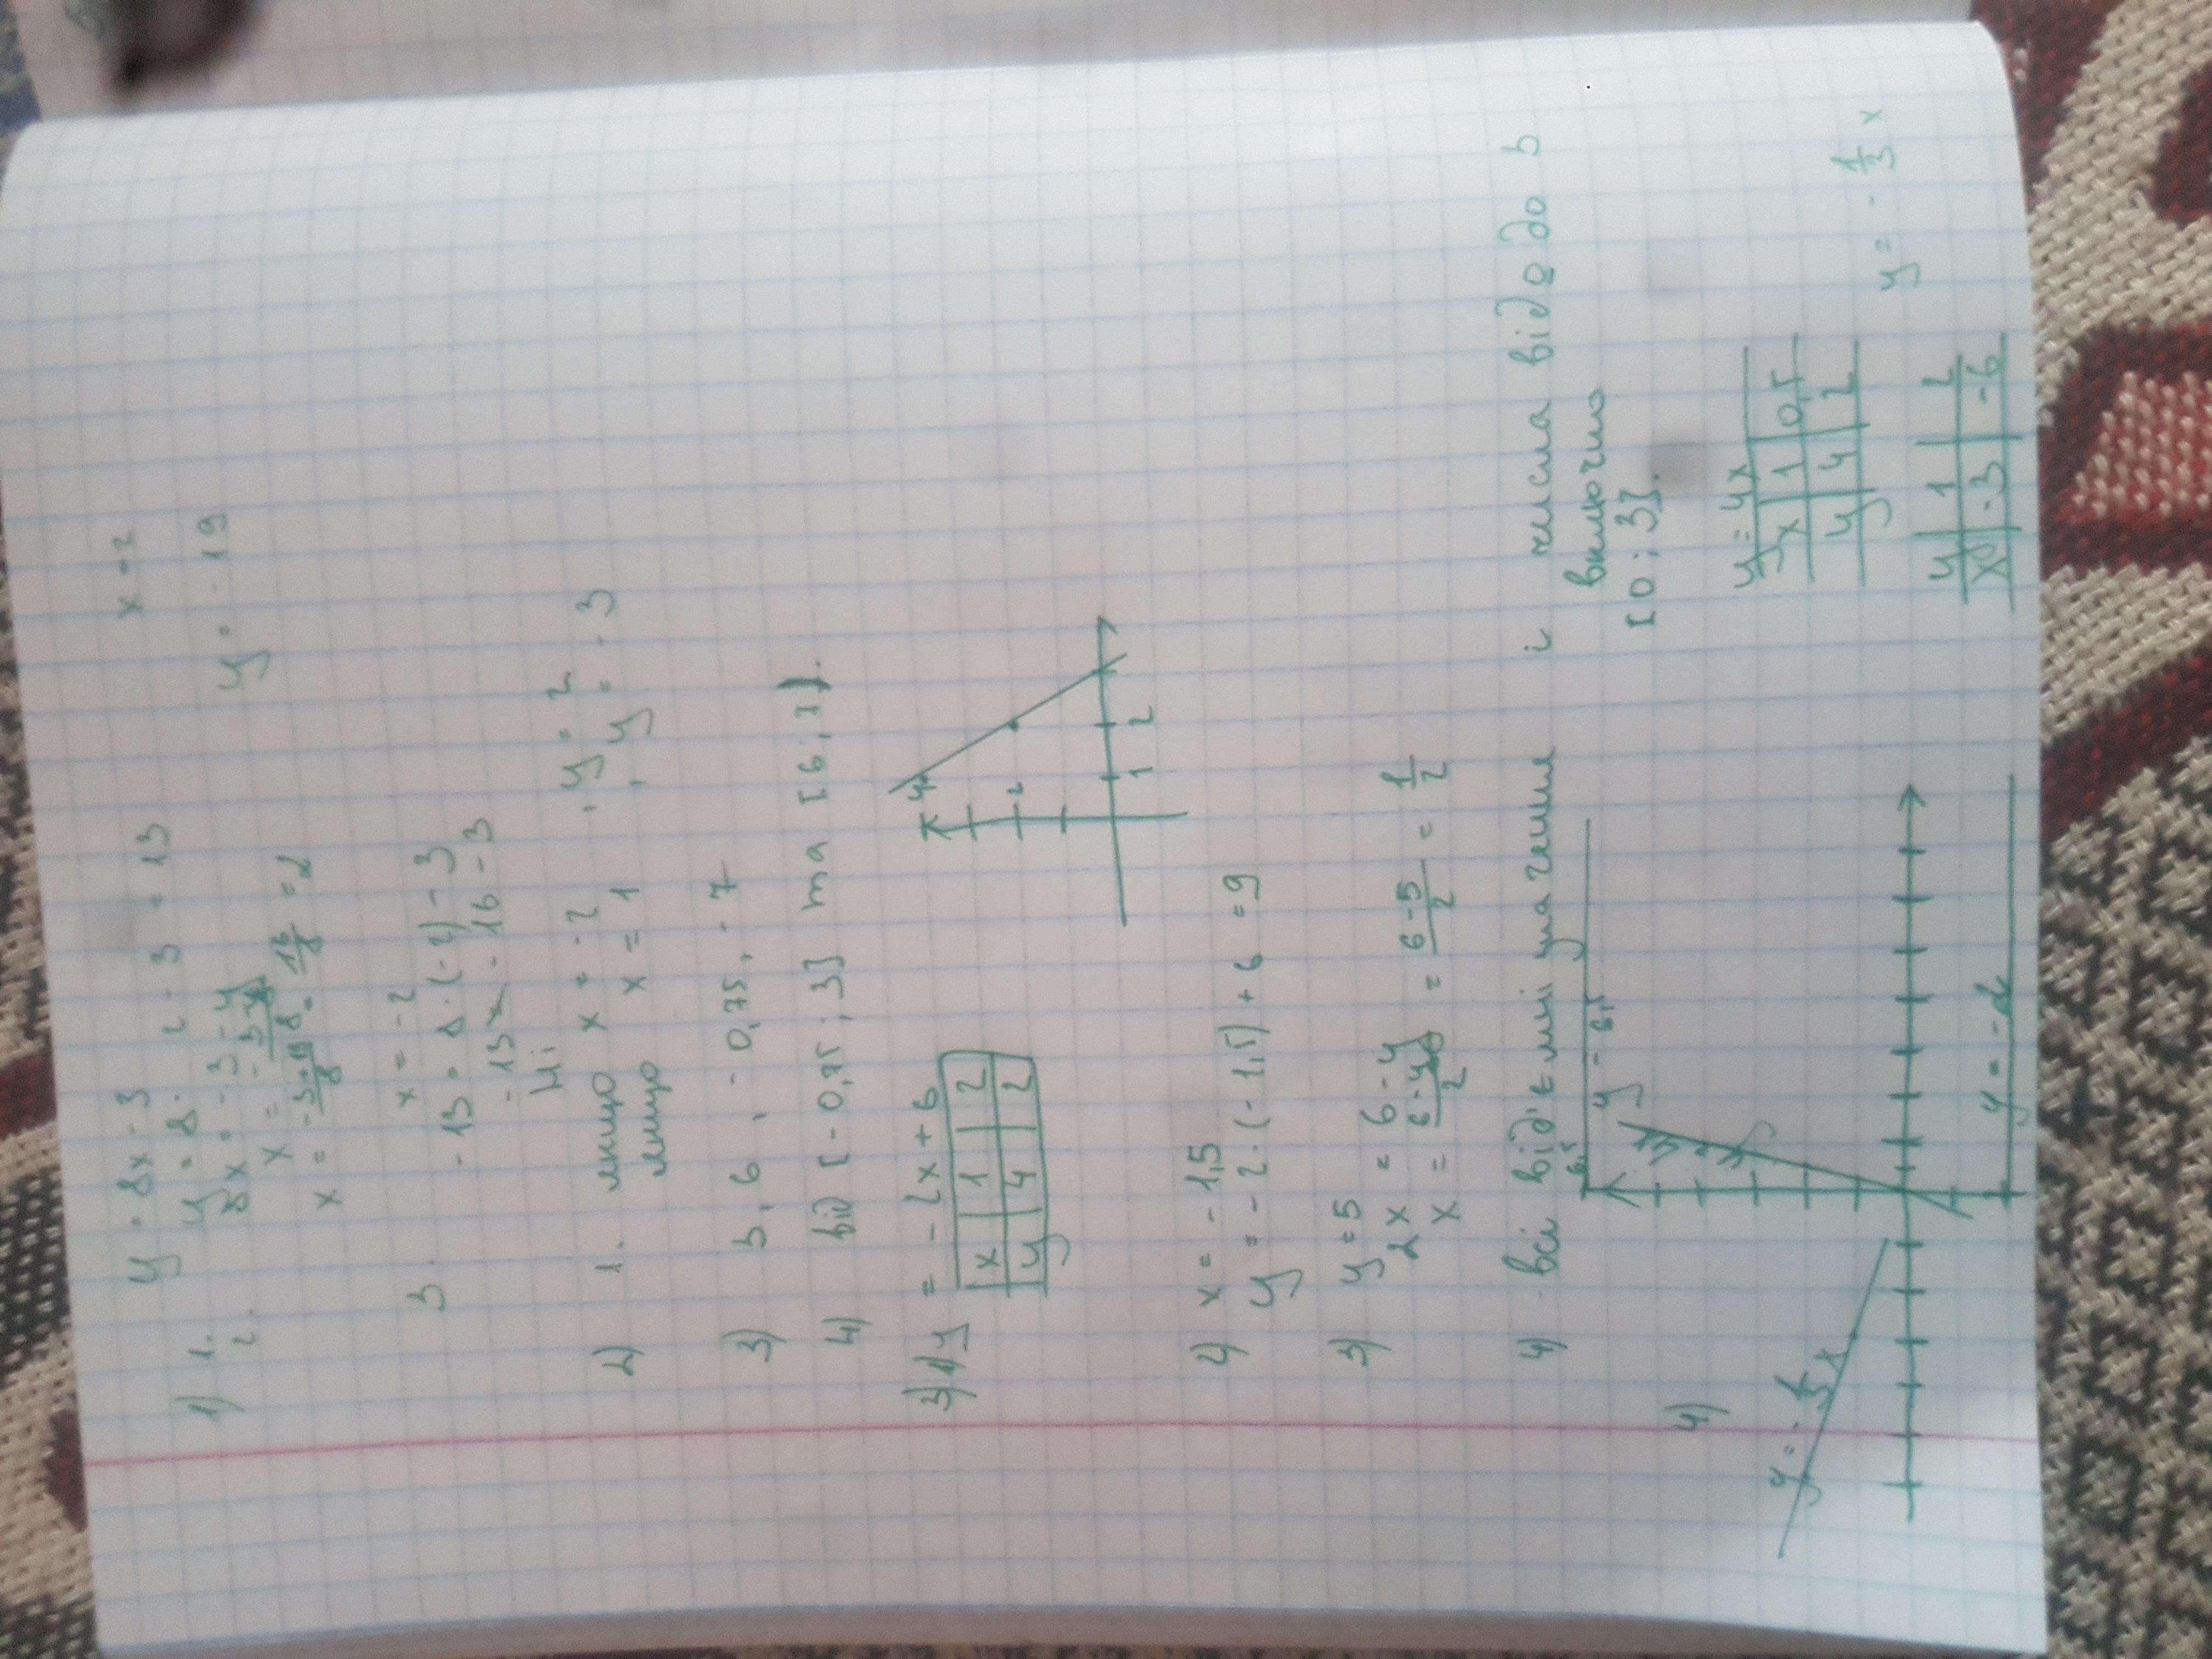 y = 8x - 3
x = 2
1) 1. y = 8 · 2 - 3 = 13
y = -19
2. 8x = -3 - y
x = -2
3. -13 = 8 · (-2) - 3
-13 ≠ -16 - 3
Ні
2) 1. якщо x = -2, y = 2
якщо x = 1, y = -3
3) 3, 6, -0,75, -7
4) від [-0,75; 3] та [6; 7].
3) 1) y = -2x + 6
x 1 2
y 4 2
4
2
1 2
2) x = -1,5
y = -2 · (-1,5) + 6 = 9
3) y = 5
2x = 6 - y
x = = 6-5/2 = 1/2
4) всі від'ємні значення і числа від 0 до 3
включно
[0; 3].
4)
y = 6,5
y = 4x
x 1 0,5
y 4 2
y = -1/3 x
y = -1/3 x
y 1 2
x -3 -6
y = -2